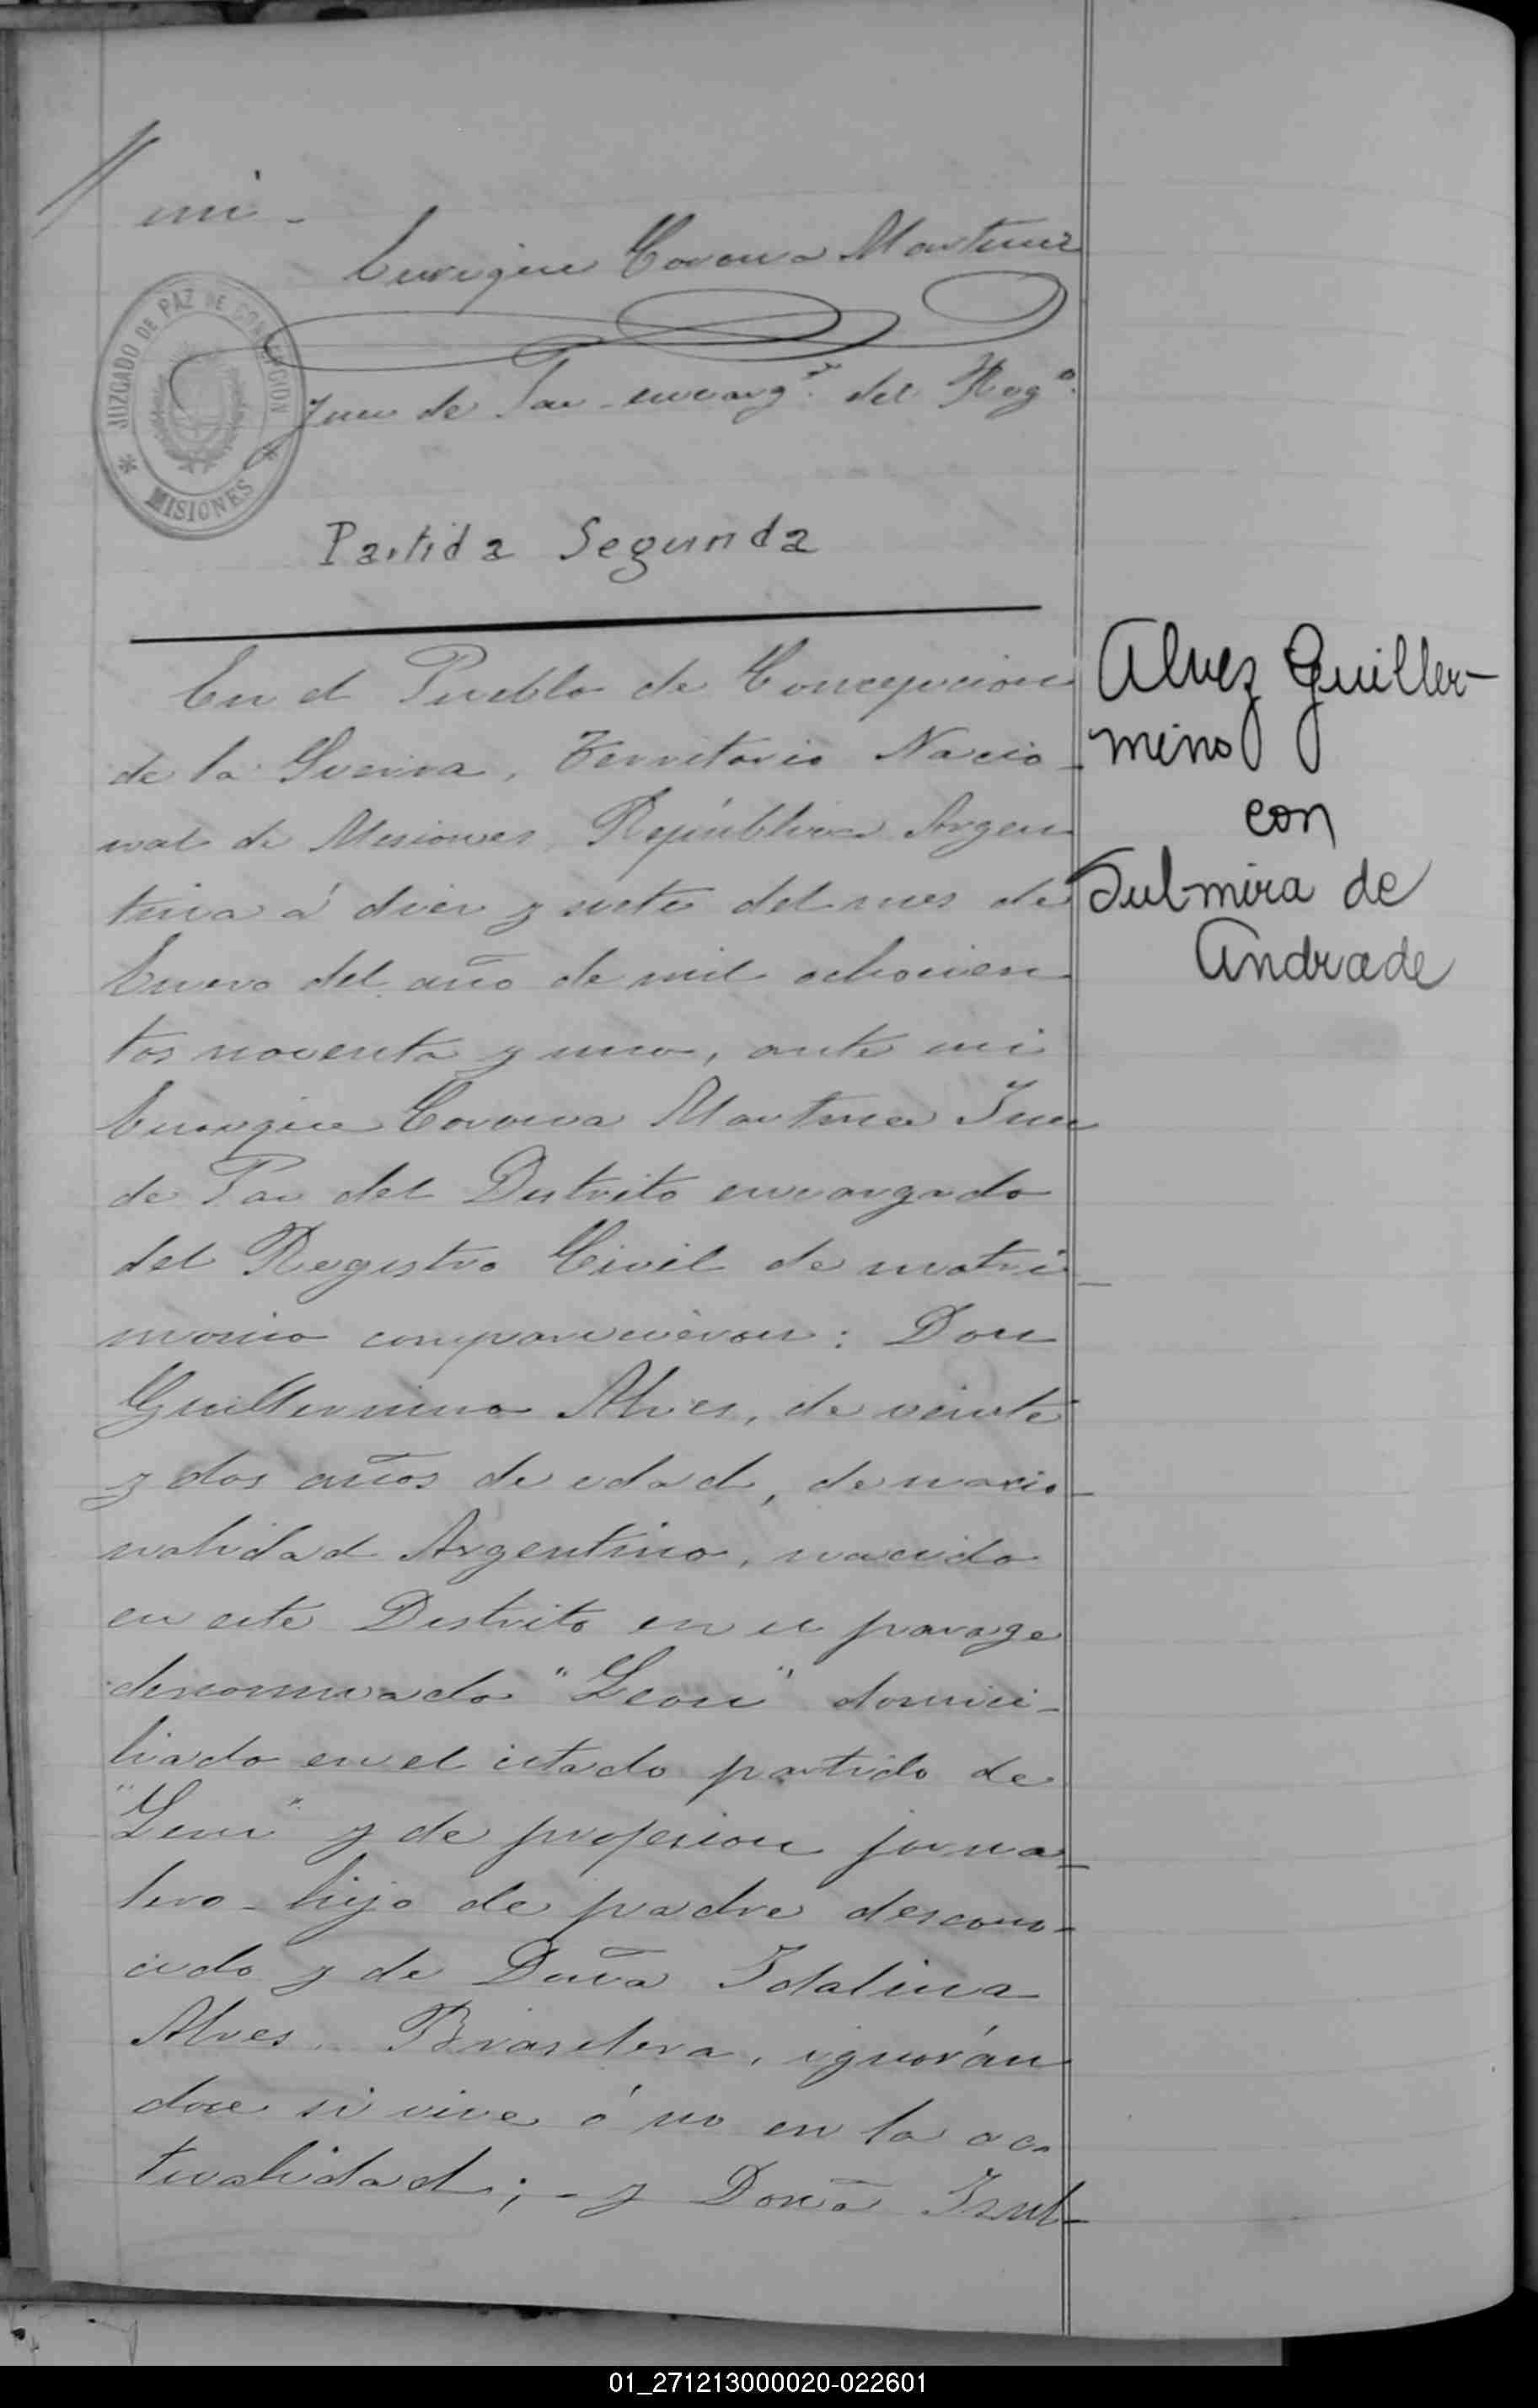 mi -
Enrique Corona Martinez
JUZGADO DE PAZ DE CONCEPCION
* MISIONES *
Juez de Paz encargº del Regº
Partida Segunda
En el Pueblo de Concepcion
de la Sierra, Territorio Nacio
nal de Misiones, República Argen
tina á diez y siete del mes de
Enero del año de mil ochocien
tos noventa y uno, ante mi
Enrique Corona Martinez Juez
de Paz del Distrito encargado
del Registro Civil de matri
monio comparecieron: Don
Guillermino Alves, de veinte
y dos años de edad, de nacio
nalidad Argentino, nacido
en este Distrito en el parage
denominado "Leon" domici-
liado en el citado partido de
"Leon" y de profesion jorna
lero - hijo de padre descono-
cido y de Doña Idalina
Alves, Brasilera, ignorán
dose si vive ó no en la ac
tualidad; - y Doña Izul-
Alvez Guiller-
mino
con
Sulmira de
Andrade
01_271213000020-022601